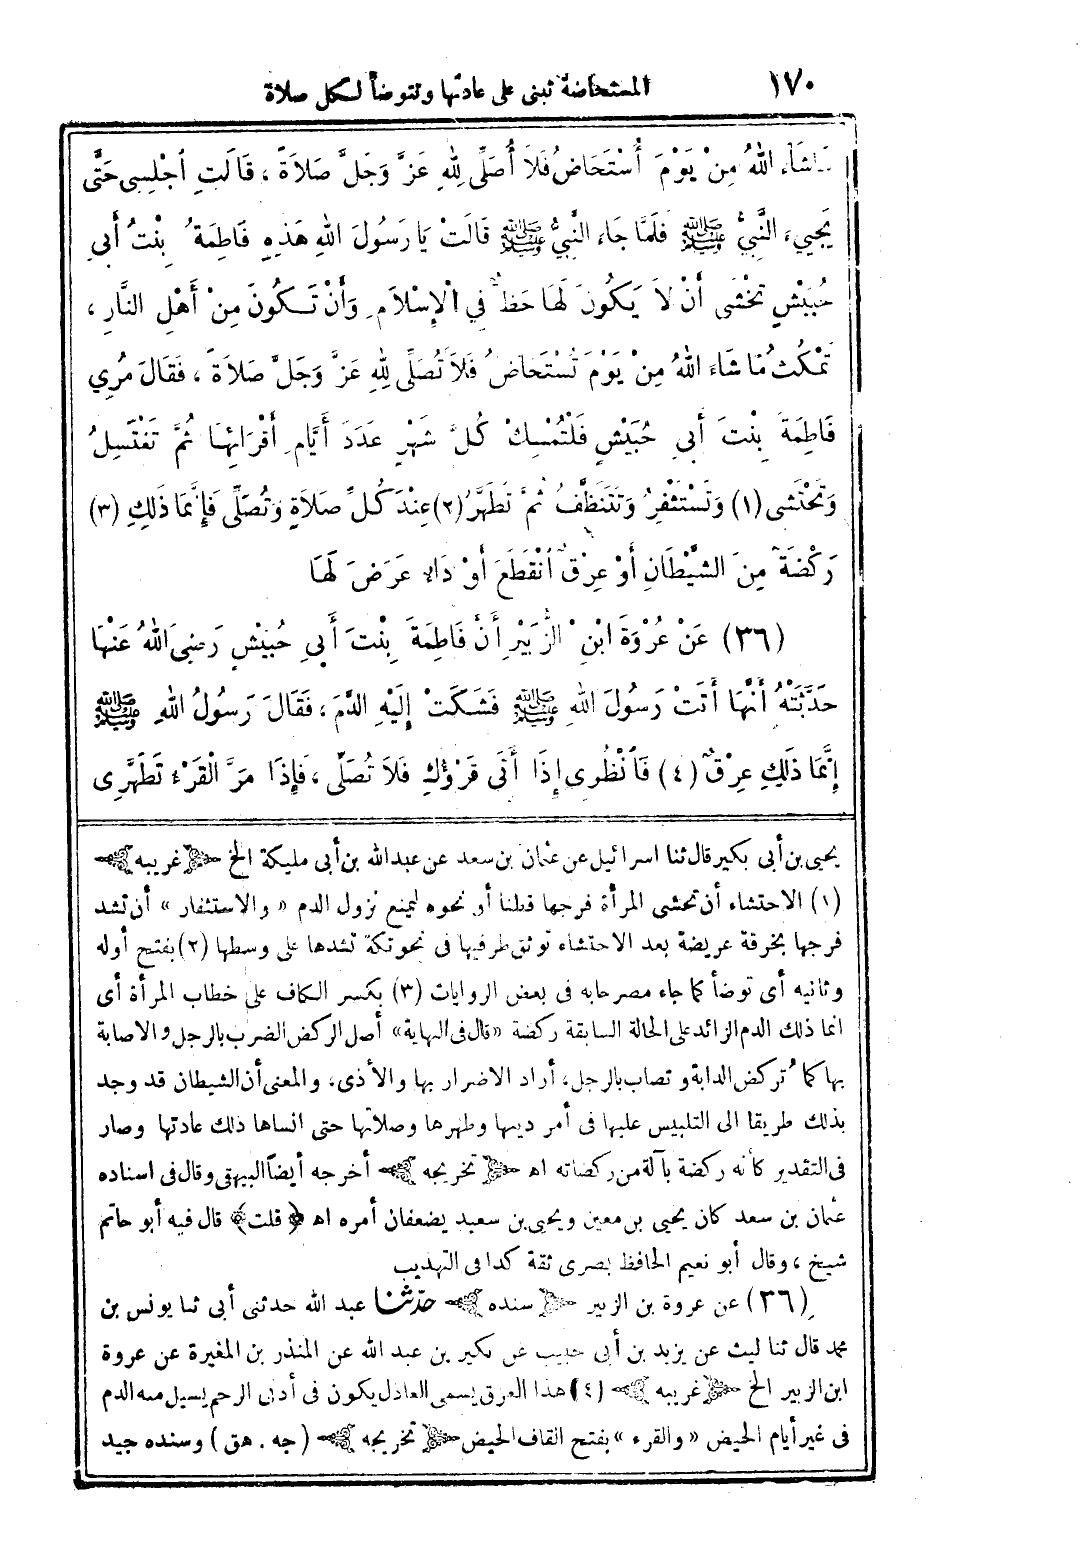 ١٧٠ المستحاضة تبنى على عادتها وتتوضأ لكل صلاة
مَا شَاءَ اللهُ مِنْ يَوْمَ أُسْتَحَاضُ فَلاَ أُصَلِّى لِلهِ عَزَّ وَجَلَّ صَلاَةً ، قَالَتِ اُجْلِسِى حَتَّى
يَجِيءَ النَّبِىُّ ﷺ فَلَمَّا جَاءَ النَّبِىُّ ﷺ قَالَتْ يَا رَسُولَ اللهِ هَذِهِ فَاطِمَةُ بِنْتُ أَبِى
حُبَيْشٍ تَخْشَى أَنْ لاَ يَكُونَ لَهَا حَظٌّ فِي الْإِسْلاَمِ وَأَنْ تَكُونَ مِنْ أَهْلِ النَّارِ ،
تَمْكُثُ مَا شَاءَ اللهُ مِنْ يَوْمَ تُسْتَحَاضُ فَلاَ تُصَلِّى لِلهِ عَزَّ وَجَلَّ صَلاَةً ، فَقَالَ مُرِي
فَاطِمَةَ بِنْتَ أَبِى حُبَيْشٍ فَلْتُمْسِكْ كُلَّ شَهْرٍ عَدَدَ أَيَّامِ أَقْرَائِهَا ثُمَّ تَغْتَسِلُ
وَتَحْتَشِى (١) وَتَسْتَثْفِرُ وَتَتَنَظَّفُ ثُمَّ تَطَهَّرُ (٢) عِنْدَ كُلِّ صَلاَةٍ وَتُصَلِّى فَإِنَّمَا ذَلِكِ (٣)
رَكْضَةٌ مِنَ الشَّيْطَانِ أَوْ عِرْقٌ اُنْقَطَعَ أَوْ دَاءٌ عَرَضَ لَهَا
(٣٦) عَنْ عُرْوَةَ ابْنِ الزُّبَيْرِ أَنَّ فَاطِمَةَ بِنْتَ أَبِى حُبَيْشٍ رَضِىَ اللهُ عَنْهَا
حَدَّثَتْهُ أَنَّهَا أَتَتْ رَسُولَ اللهِ ﷺ فَشَكَتْ إِلَيْهِ الدَّمَ ، فَقَالَ رَسُولُ اللهِ ﷺ
إِنَّمَا ذَلِكِ عِرْقٌ (٤) فَانْظُرِى إِذَا أَتَى قَرْؤُكِ فَلاَ تُصَلِّى ، فَإِذَا مَرَّ الْقَرْءُ تَطَهَّرِى
يحيى بن أبى بكير قال ثنا اسرائيل عن عثمان بن سعد عن عبد الله بن أبى مليكة الخ ﴿غريبه﴾
(١) الاحتشاء أن تحشى المرأة فرجها قطنا أو نحوه ليمنع نزول الدم « والاستثفار » أن تشد
فرجها بخرقة عريضة بعد الاحتشاء توثق طرفيها فى نحو تكة تشدها على وسطها (٢) بفتح أوله
وثانيه أى توضأ كما جاء مصرحا به فى بعض الروايات (٣) بكسر الكاف على خطاب المرأة أى
انما ذلك الدم الزائد على الحالة السابقة ركضة «قال فى النهاية» أصل الركض الضرب بالرجل والاصابة
بها كما تُركض الدابة وتصاب بالرجل، أراد الاضرار بها والأذى، والمعنى أن الشيطان قد وجد
بذلك طريقا الى التلبيس عليها فى أمر دينها وطهرها وصلاتها حتى انساها ذلك عادتها وصار
فى التقدير كأنه ركضة بآلة من ركضاته اهـ ﴿تخريجه﴾ أخرجه أيضاً البيهقى وقال فى اسناده
عثمان بن سعد كان يحيى بن معين ويحيى بن سعيد يضعفان أمره اهـ ﴿قلت﴾ قال فيه أبو حاتم
شيخ ، وقال أبو نعيم الحافظ بصرى ثقة كذا فى التهذيب
(٣٦) عن عروة بن الزبير ﴿سنده﴾ حدّثنا عبد الله حدثنى أبى ثنا يونس بن
محمد قال ثنا ليث عن يزيد بن أبى حبيب عن بكير بن عبد الله عن المنذر بن المغيرة عن عروة
ابن الزبير الخ ﴿غريبه﴾ (٤) هذا العرق يسمى العاذل يكون فى أدنى الرحم يسيل منه الدم
فى غير أيام الحيض « والقرء » بفتح القاف الحيض ﴿تخريجه﴾ (جه . هق) وسنده جيد